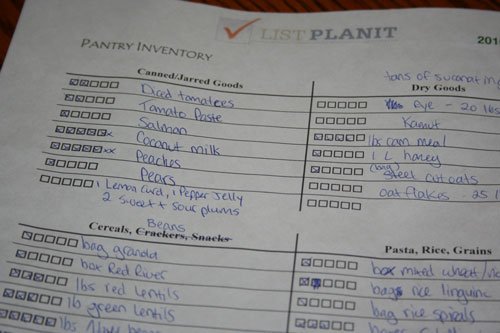 LIST PLANIT
201
PANTRY INVENTORY
Canned/Jarred Goods
Diced tomatoes
Tomato Paste
Salmon
Coconut milk
Peaches
Pears
1 Lemon Curd, 1 Pepper Jelly
2 Sweet + Sour plums
tons of sucanat in
Dry Goods
Rye - 20 lbs
Kamut
lbs corn meal
1 L honey
(bag) Steel cut oats
oat flakes - 25 l
Beans
Cereals, Crackers, Snacks
bag granola
box Red River
lbs red lentils
lb green lentils
lbs
Pasta, Rice, Grains
box mixed wheat/
bags rice linguine
bag rice spirals